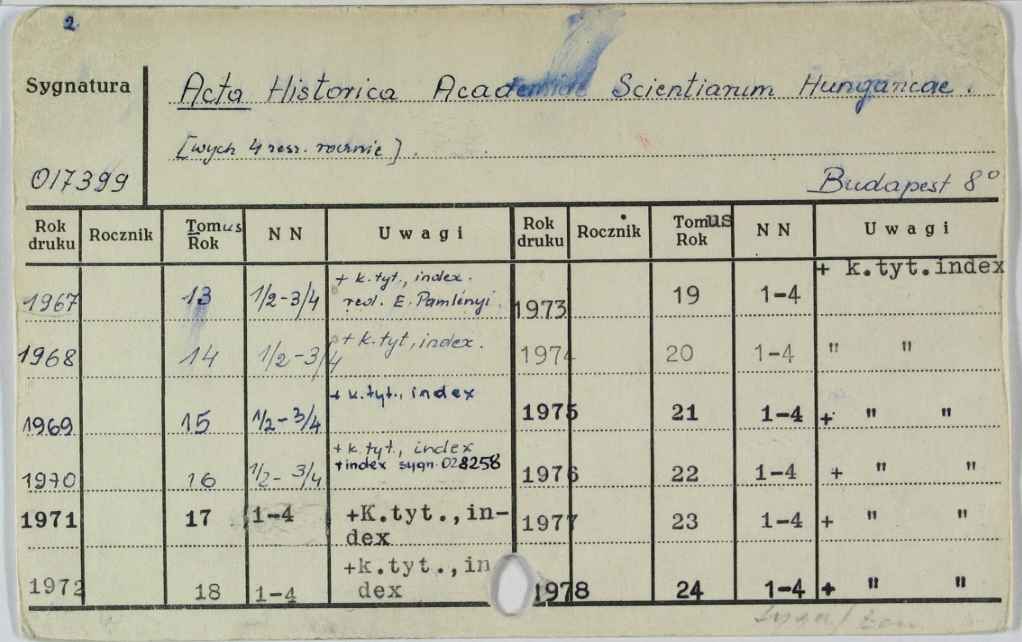 2
Sygnatura
Acta Historica Academiae Scientiarum Hungaricae.
[wych 4 razr. rocznie].
017399
Budapest 8°
Rok druku Rocznik Tomus Rok NN Uwagi Rok druku Rocznik Tomus Rok NN Uwagi
1967 13 1/2-3/4 + k.tyt., index. red. E. Pamlényi. 1973 19 1-4 + k.tyt.index
1968 14 1/2-3/4 + k.tyt, index. 1974 20 1-4 " "
1969 15 1/2-3/4 + k.tyt., index 1975 21 1-4 + " "
1970 16 1/2-3/4 + k.tyt., index +index sygn. 028258 1976 22 1-4 + " "
1971 17 1-4 +K.tyt.,in-dex 1977 23 1-4 + " "
1972 18 1-4 +k.tyt.,in dex 1978 24 1-4 + " "